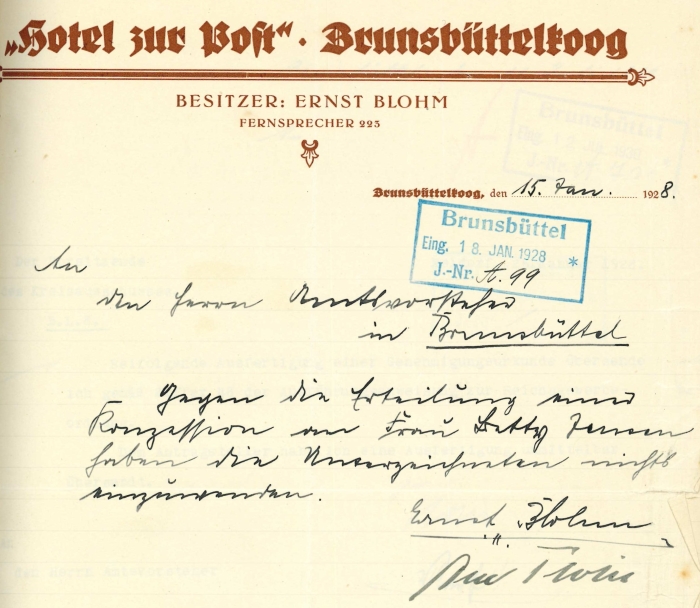 „Hotel zur Post“ · Brunsbüttelkoog
BESITZER: ERNST BLOHM
FERNSPRECHER 225
Brunsbüttelkoog, den 15. Jan. 1928.
Brunsbüttel
Eing. 18. JAN. 1928 *
J.-Nr. A. 99
An
den Herrn Amtsvorsteher
in Brunsbüttel
Gegen die Erteilung einer
Konzession an Frau Betty Jensen
haben die Unterzeichneten nichts
einzuwenden.
Ernst Blohm